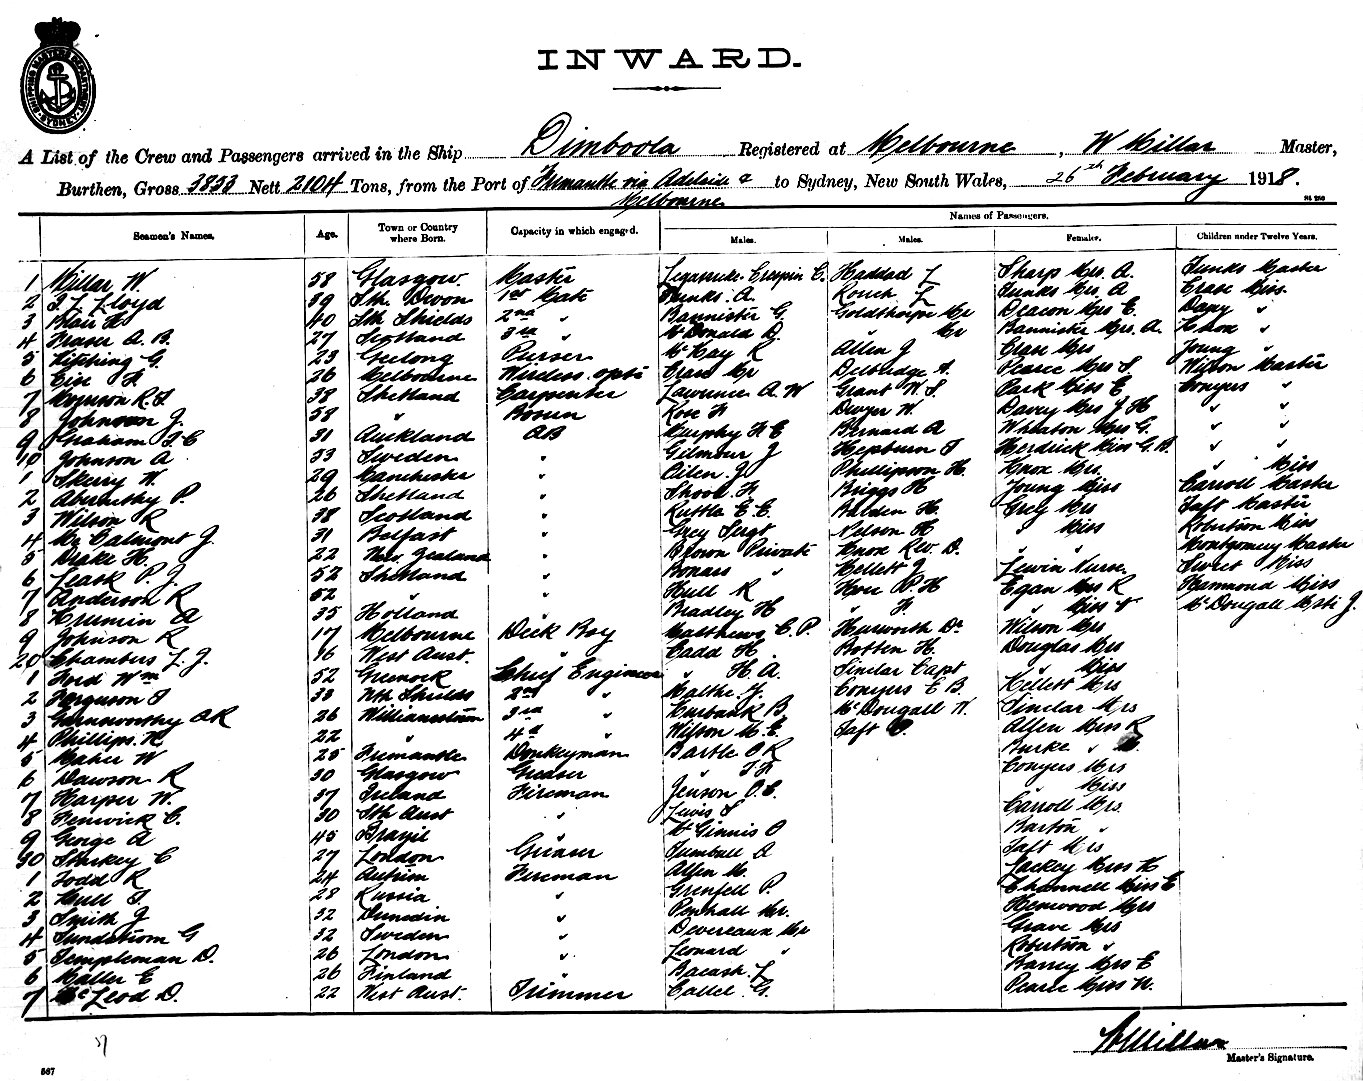 SHIPPING MASTER'S DEPARTMENT SYDNEY
INWARD.
A List of the Crew and Passengers arrived in the Ship Dimboola Registered at Melbourne, W Millar Master,
Burthen, Gross 3833 Nett 2104 Tons, from the Port of Fremantle via Adelaide & to Sydney, New South Wales, 26th February 1918.
Melbourne
Names of Passengers.
Seamen's Names. Age. Town or Country where Born. Capacity in which engaged. Males. Males. Females. Children under Twelve Years.
1 Millar W. 58 Glasgow Master Legassick Crespin C. Haddad L Sharp Mrs. A. Junks Master
2 Lloyd 39 Sth Devon 1st Mate Junks. A. Rouch L Junks Mrs A Crase Miss
3 Blair 40 Sth Shields 2nd " Bannister G Goldthorpe Mr Deacon Mrs E. Davy "
4 Fraser A. B. 27 Scotland 3rd " McDonald D. " Mr Bannister Mrs. A. Knox "
5 Kitching G. 23 Geelong Purser McKay R Allen J Crase Mrs Young "
6 26 Melbourne Wireless opts Crase Mr Delbridge A. Pearce Mrs S Wilson Master
7 R. S. 38 Shetland Carpenter Lawrence A. W Grant W. S. Park Miss E Conyers "
8 Johnson J. 58 " Bosun Rose Dwyer W. Davey Mrs J H " "
9 Graham 31 Auckland AB Murphy Bernard A Wharton Mrs G. " "
10 Johnson A 33 Sweden " Gilmour J Hepburn Miss G. B. " "
1 Skerry W. 29 Manchester " Phillipson H. Knox Mrs. " Miss
2 Abernethy P. 26 Shetland " Briggs H Young Miss Carroll Master
3 Wilson R 38 Scotland " Ruttle E. C. Balden H. Grey Mrs Taft Master
4 McCalmont J. 31 Belfast " Grey Sergt Nelson H " Miss Robertson Miss
5 Drake H. 22 New Zealand " Brown Private Knox Rev. D. " " Montgomery Master
6 Leask P. J. 52 Shetland " " Kellett J Lewin Nurse Sweet Miss
7 Anderson R 52 " " Hull R Hore P. H Egan Mrs R Hammond Miss
8 35 Holland " Bradley H " Miss McDougall Mstr J.
9 Johnson R 17 Melbourne Deck Boy Matthews C. P. Haworth Dr Wilson Mrs
20 Chambers L. J. 16 West Aust. " Cadd H Rotten H. Douglas Mrs
1 Ford Wm 52 Greenock Chief Engineer " H. A. Sinclar Capt " Miss
2 Ferguson 33 Nth Shields 2nd " Conyers E B. Kellett Mrs
3 Garnsworthy A R 26 Williamstown 3rd " Burbank B McDougall N. Sinclar Mrs
4 Phillips 22 " 4th " Wilson M. E. Taft Allen Miss R
5 Maher W 25 Fremantle Donkeyman Bartle O R Burke "
6 Dawson R 30 Glasgow Greaser " Conyers Mrs
7 Harper W. 37 Ireland Fireman Jenson O. C. " Miss
8 Fenwick C. 30 Sth Aust " Lewis S Carroll Mrs
9 George A 45 Brazil " McGinnis O Barton "
30 Sharkey C 27 London Greaser Turnbull A Taft Mrs
1 Todd R 24 Antrim Fireman Allen W. Lackey Miss H
2 Hull 28 Russia " Grenfell P. Channell Miss E
3 Smith J 32 Dunedin " Penhall Mr. Henwood Mrs
4 Sundstrom G 32 Sweden " Devereaux Mr Grave Mrs
5 Templeman D. 26 London " Leonard " Robertson "
6 Maller E 26 Finland " Bacash L Barry Mrs E
7 McLeod D. 22 West Aust. Trimmer Collel G. Pearce Miss W.
W Millar
Master's Signature.
567